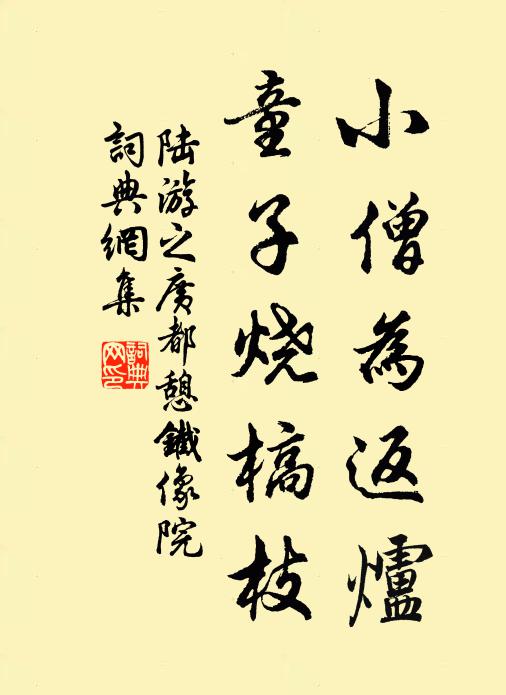 小僧為返爐
童子燒槁枝
陆游之廣都憩鐵像院
詞典網集
詞典網印